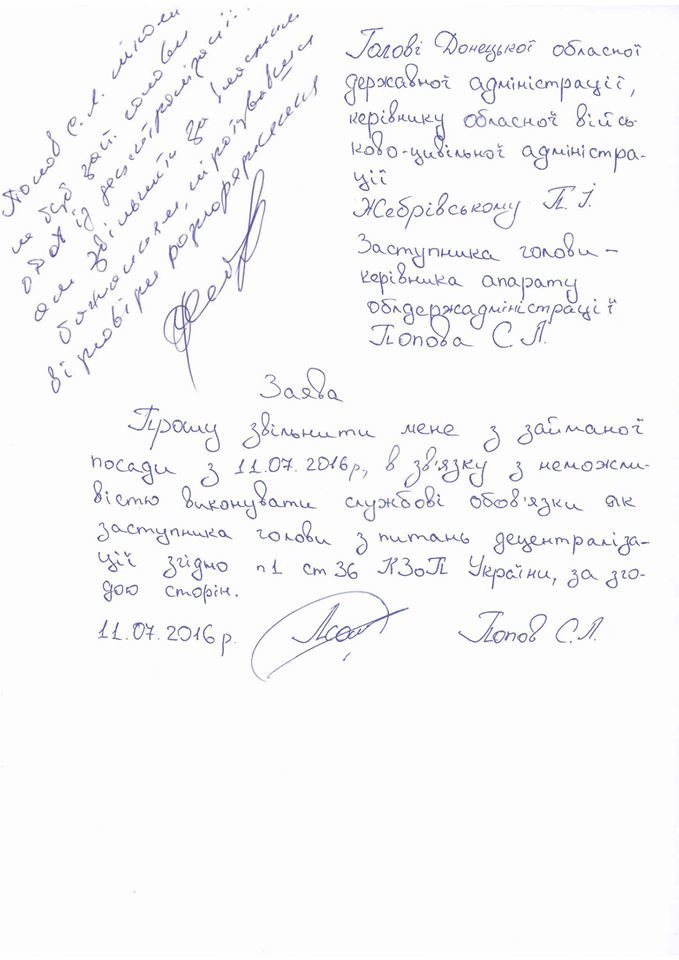 Попов С.Л. ніколи
не був заст. голови
ОДА із децентралізації!!
але звільнити за власним
бажанням, підготувавши
відповідне розпорядження
Голові Донецької обласної
державної адміністрації,
керівнику обласної війсь-
ково-цивільної адміністра-
ції
Жебрівському П.І.
Заступника голови –
керівника апарату
облдержадміністрації
Попова С.Л.
Заява
Прошу звільнити мене з займаної
посади з 11.07.2016р, в зв'язку з неможли-
вістю виконувати службові обов'язки як
заступника голови з питань децентраліза-
ції згідно п1 ст36 КЗоП України, за зго-
дою сторін.
11.07.2016р. Попов С.Л.